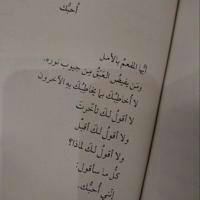 أحبُّك
أيُّها المفعمُ بالأمل
ومَن يفيضُ العَبَقُ مِن جيوبِ نوره.
لا أخاطبُكَ بما يخاطبُكَ بهِ الآخرون
لا أقولُ لكَ تأخّرتَ
ولا أقولُ لكَ أقبِل
ولا أقولُ لكَ لماذا؟
كلُّ ما سأقول:
إنّني أحبُّك.